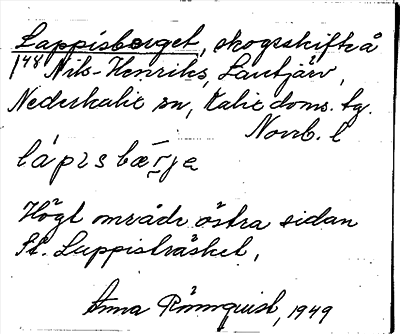 Lappisberget, skogsskifte å
1⁴⁸ Nils-Henriks, Lantjärv,
Nederkalix sn, Kalix doms. tg.
Norrb. l
lápisbæ̀rje
Högt område östra sidan
St. Lappisträsket,
Anna Rönnquist, 1949